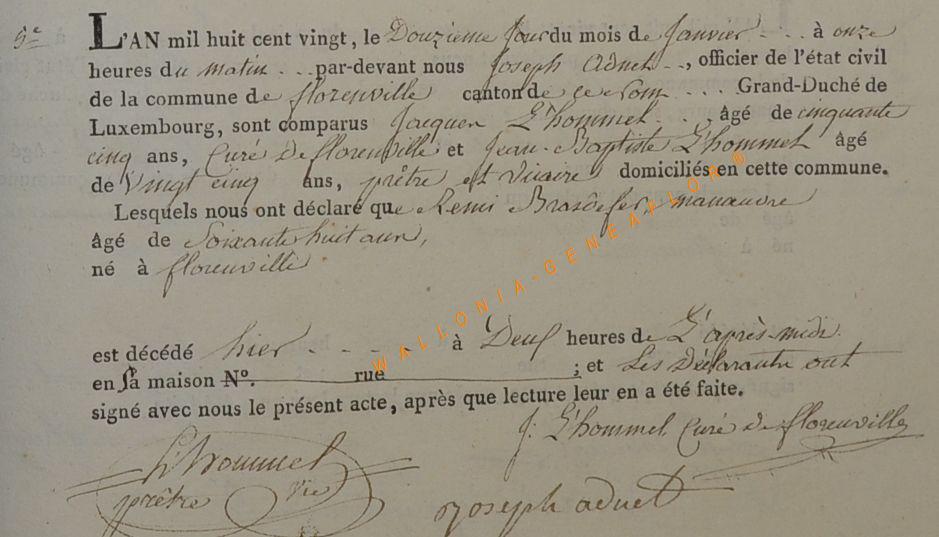 5e L'AN mil huit cent vingt, le Douzieme Jour du mois de Janvier - . . à onze
heures du matin . . . par-devant nous Joseph Adnet . . , officier de l'état civil
de la commune de florenville canton de ce Nom . . . Grand-Duché de
Luxembourg, sont comparus Jacques L'hommel . . , âgé de cinquante
cinq ans, Curé de florenville et Jean-Baptiste L'hommel âgé
de Vingt cinq ans, prêtre et vicaire domiciliés en cette commune.
Lesquels nous ont déclaré que Remi Brasdefer, manœuvre
âgé de Soixante huit ans,
né à florenville
est décédé hier - - - - à Deux heures de L'après-midi.
en sa maison N°. rue ; et Les Déclarants ont
signé avec nous le présent acte, après que lecture leur en a été faite.
J. L'hommel Curé de florenville
L'hommel
prêtre vic
joseph adnet
WALLONIA-GENEAFLOR®